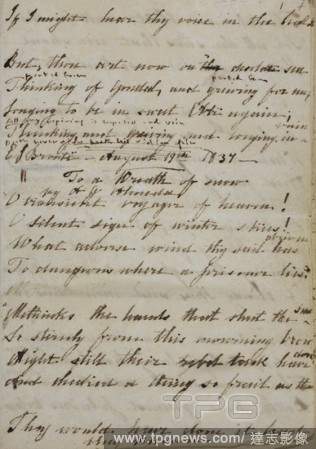 If I might hear thy voice in the
But, thou art now on the desolate sea
Thinking of Gondal, and grieving for me
Longing to be in sweet Elbë again
Thinking and grieving and longing in vain
E J Brontë - August 19th 1837 -
To a Wreath of snow
by A G Almeda
O transient voyager of heaven!
O silent sign of winter skies!
What adverse wind thy sail has
To dungeons where a prisoner lies
Methinks the hands that shut the sun
So sternly from this mourning brow
Might still their rebel task have done
And checked a thing so frail as thou
They would have done it had they
TPG
www.tpgnews.com / 達志影像